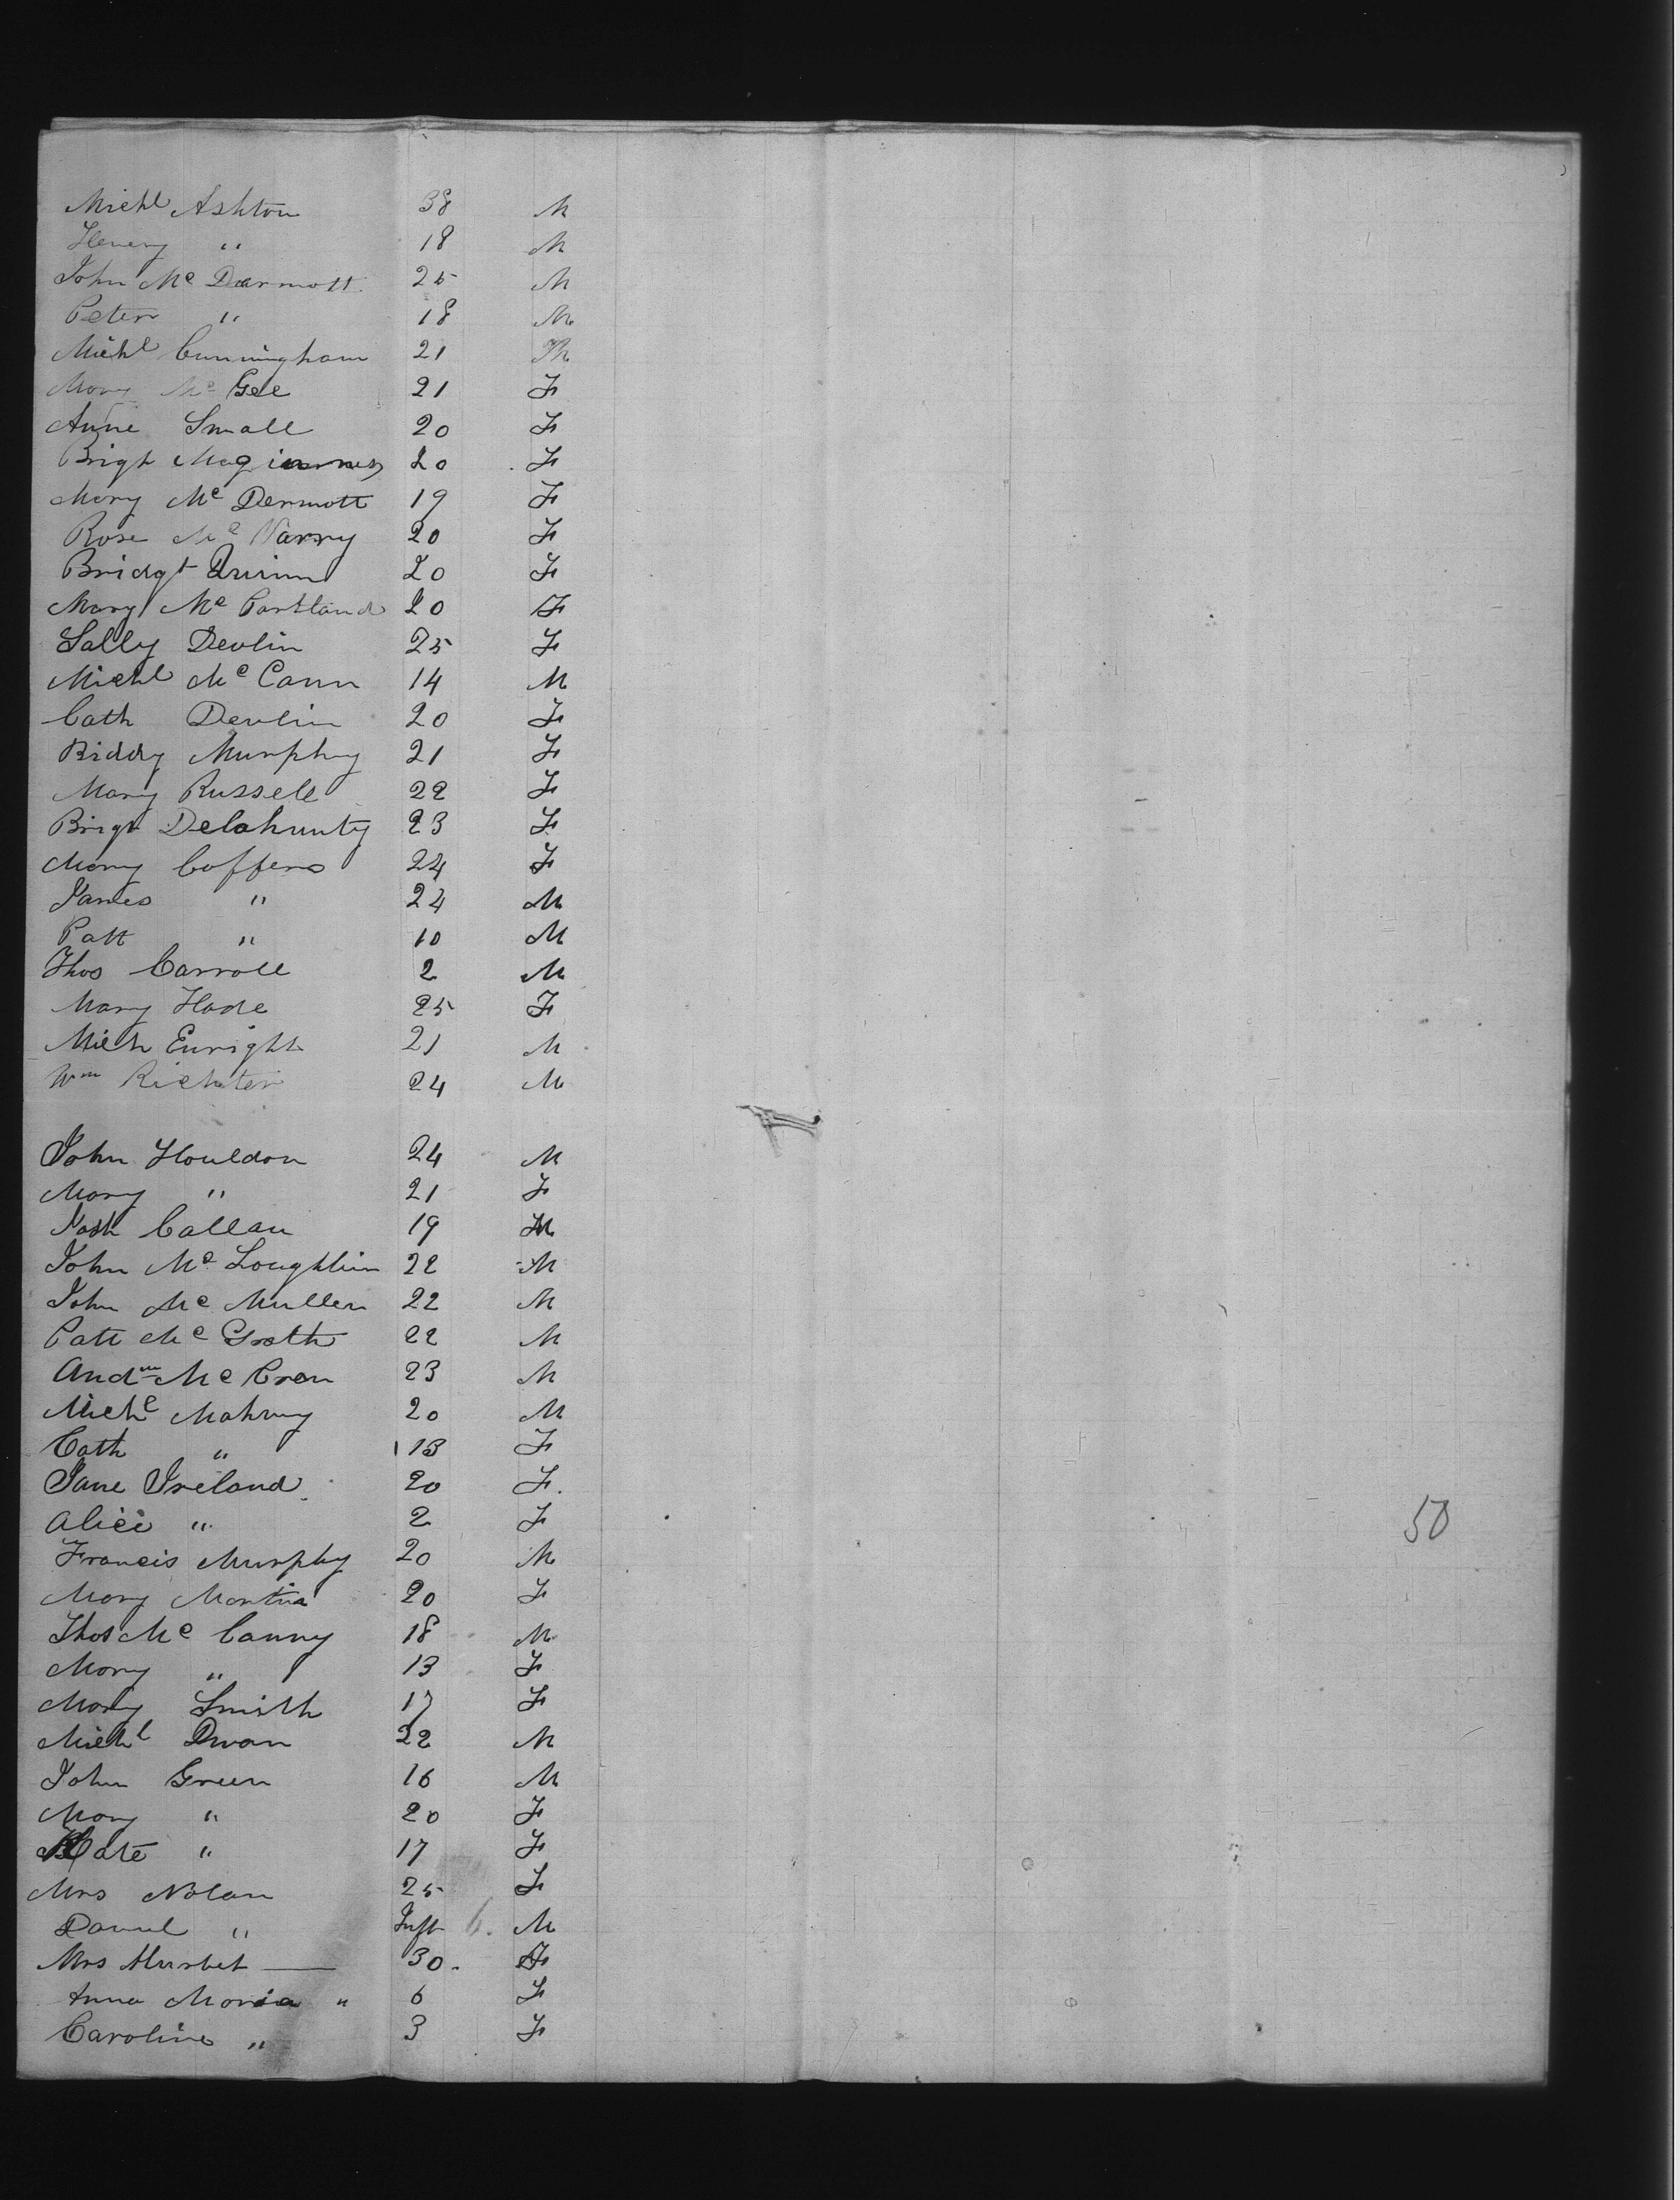 Michl Ashton 38 M
Henery " 18 M
John Mc Dearmott 25 M
Peter " 18 M
Michl Cunningham 21 M
Mary Mc Gee 21 F
Anne Small 20 F
Brigt Maginnes 20 F
Mary Mc Dermott 19 F
Rose Mc Varry 20 F
Bridgt Quinn 20 F
Mary Mc Partland 20 F
Sally Devlin 25 F
Michl Mc Cann 14 M
Cath Devlin 20 F
Biddy Murphy 21 F
Mary Russell 22 F
Brigt Delahunty 23 F
Mary Coffers 24 F
James " 24 M
Patt " 10 M
Thos Carroll 2 M
Mary Hade 25 F
Mich Enright 21 M
Wm Richter 24 M
John Houldon 24 M
Mary " 21 F
Callan 19 M
John Mc Loughlin 22 M
John Mc Mullen 22 M
Patt Mc Grath 22 M
Andw Mc Cron 23 M
Michl Mahony 20 M
Cath " 13 F
Jane Ireland 20 F
Alice " 2 F
Francis Murphy 20 M
Mary Martin 20 F
Thos Mc Canny 18 M
Mary " 13 F
Mary Smith 17 F
Michl Dwan 22 M
John Green 16 M
Mary " 20 F
Kate " 17 F
Mrs Nolan 25 F
Daniel " Inft 6 M
Mrs 30 F
Anna Maria " 6 F
Caroline " 3 F
50